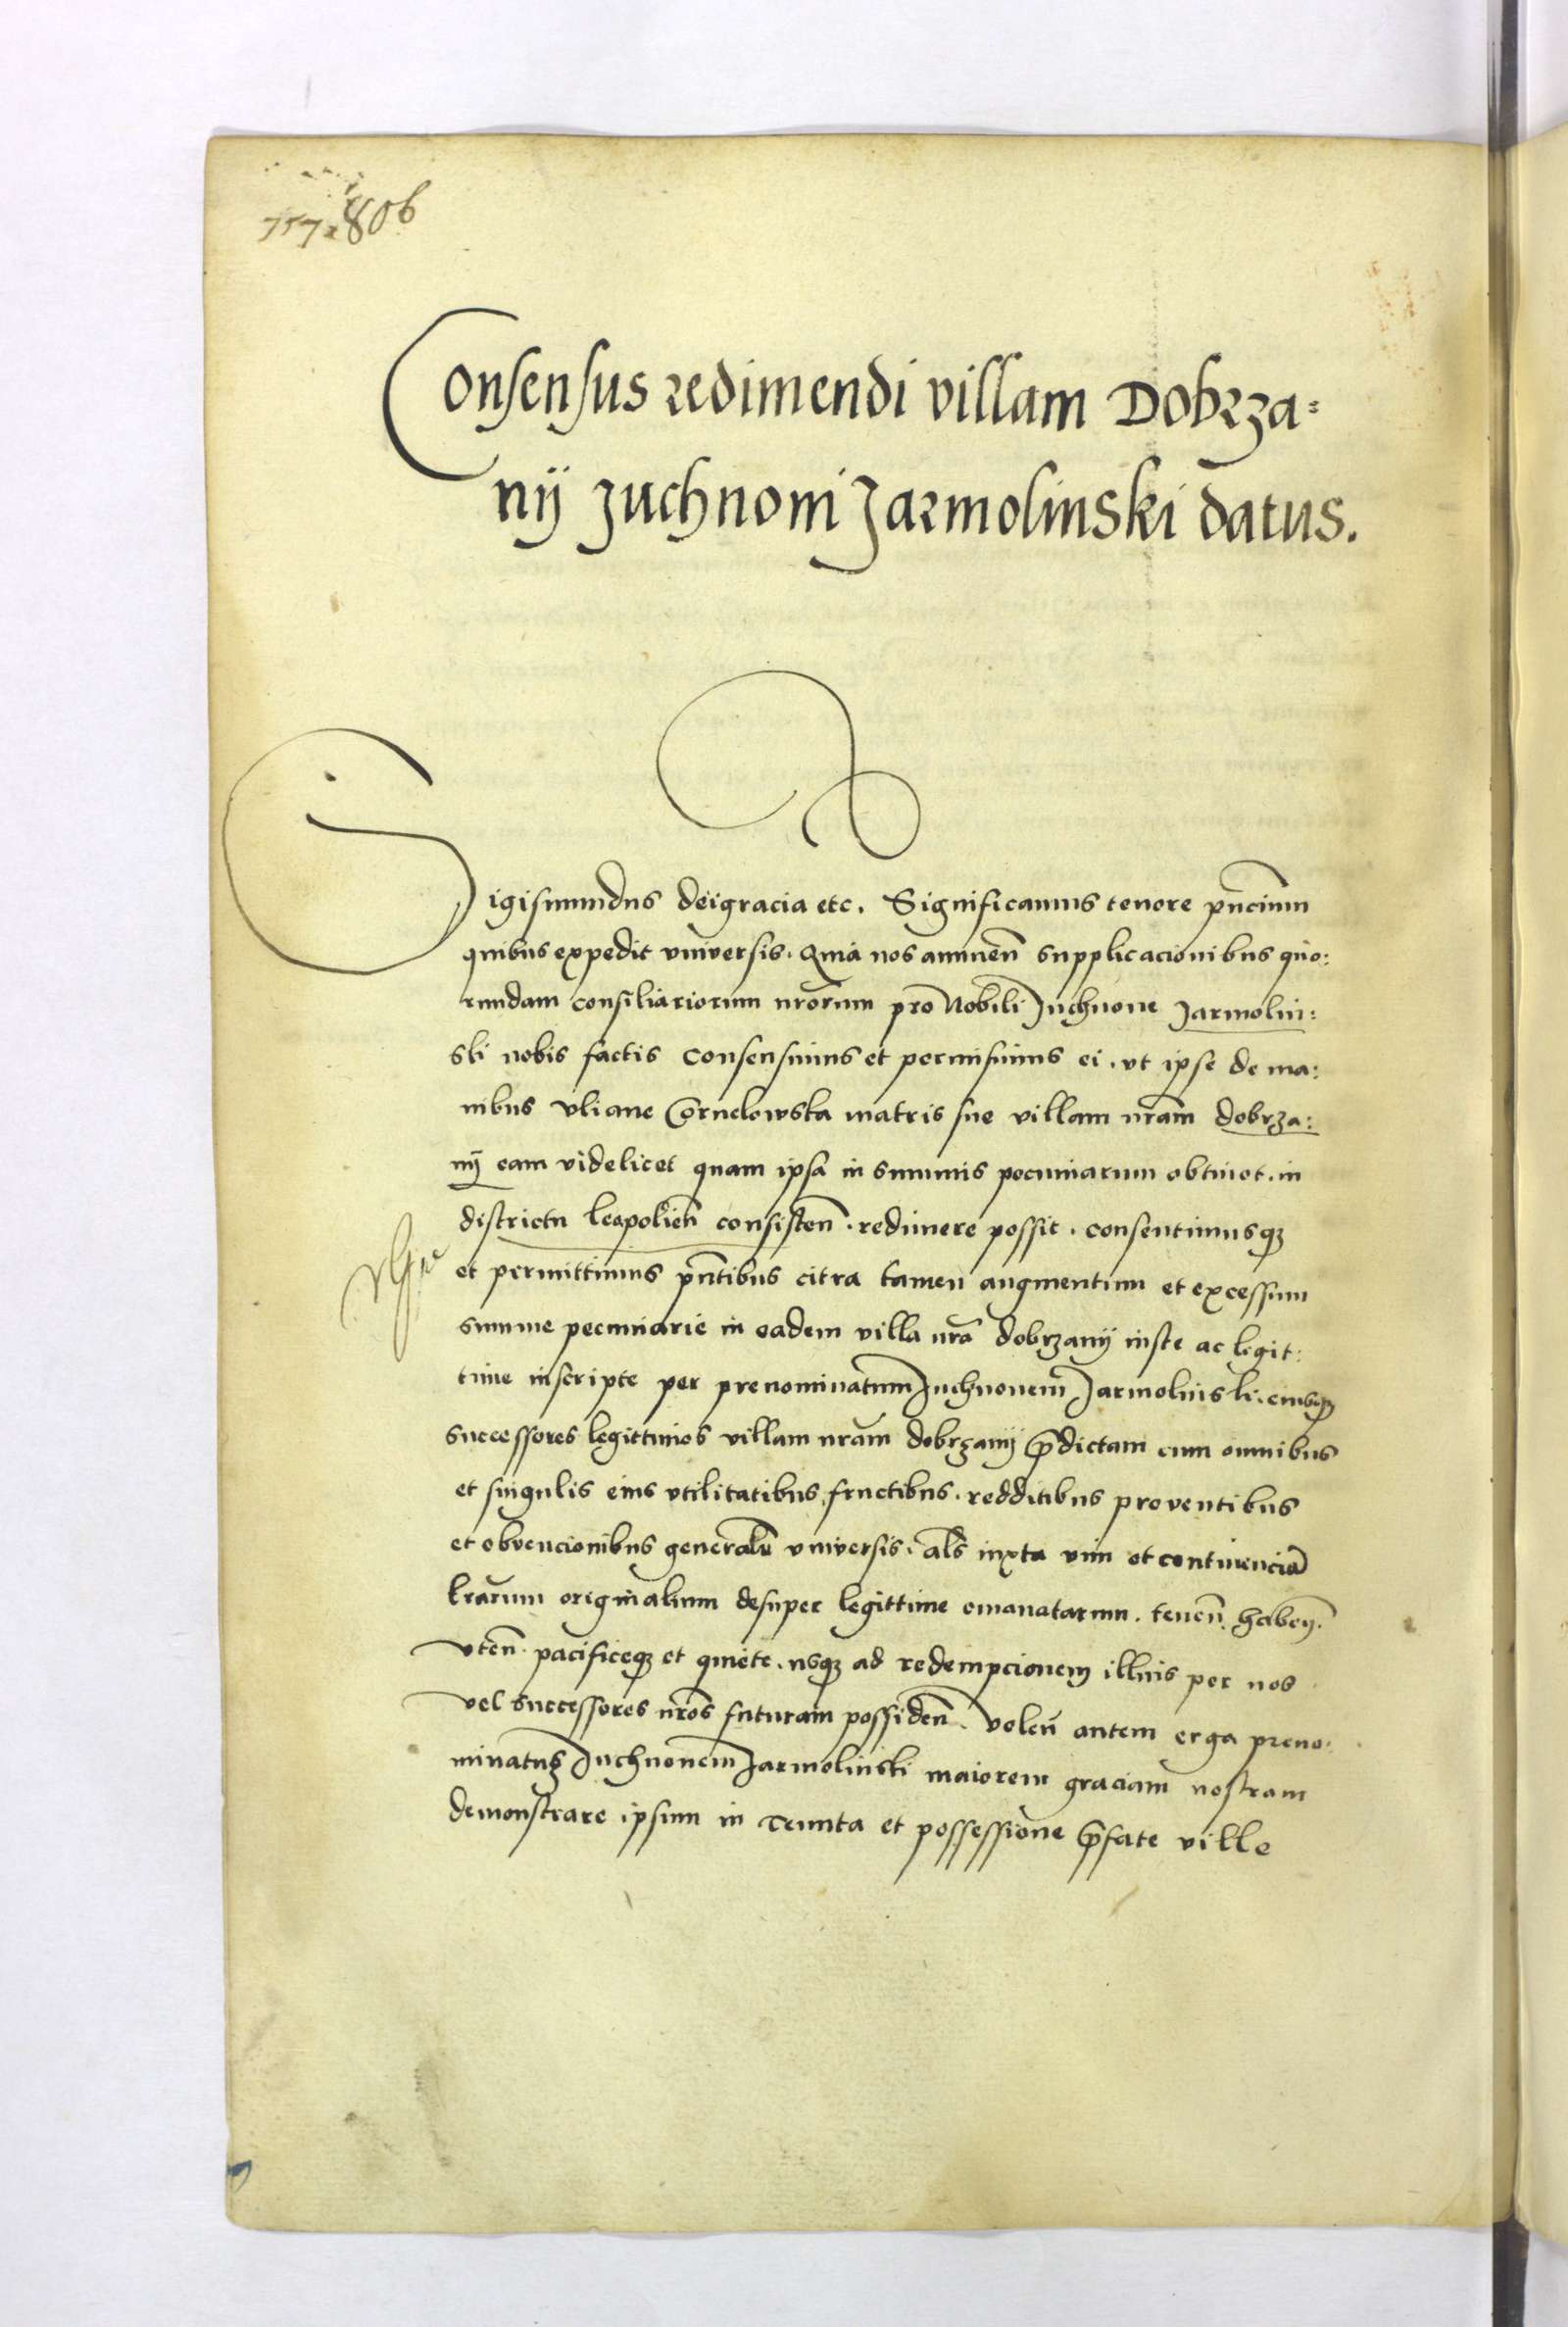 806
Consensus redimendi villam Dobrza=
nij Juchnoni Jarmolinski datus.
Sigismundus dei gracia etc. Significamus tenore pñcium
quibus expedit vniversis. Quia nos annuen̄ supplicacionibus quo:
rundam consiliariorum nrōrum pro Nobili Juchnone Jarmolin:
ski nobis factis consensimus et permisimus ei. vt ipse de ma:
nibus Vliane Cornelowska matris sue villam nrām dobrza:
nij eam videlicet quam ipsa in summis pecuniarum obtinet. in
districtu leopolien̄ consisten̄. redimere possit. consentimusqȝ
et permittimus pñtibus citra tamen augmentum et excessum
summe pecuniarie in eadem villa nrā dobrzanij iuste ac legit:
time inscripte per prenominatum Juchnonem Jarmolinski. eiusqȝ
successores legittimos villam nrām dobrzanij p̄dictam cum omnibus
et singulis eius vtilitatibus, fructibus. redditibus proventibus
et obvencionibus generalr̄ vniversis. al̄s iuxta vim et continenciā
lrārum originalium desuper legittime emanatarum. tenen̄. haben̄.
vten̄. pacificeqȝ et quiete. usqȝ ad redempcionem illius per nos
vel successores nrōs futuram possiden̄. Volen̄ autem erga preno:
minatuȝ Juchnonem Jarmolinski maiorem graciam nostram
demonstrare ipsum in Tenuta et possessione p̄fate ville